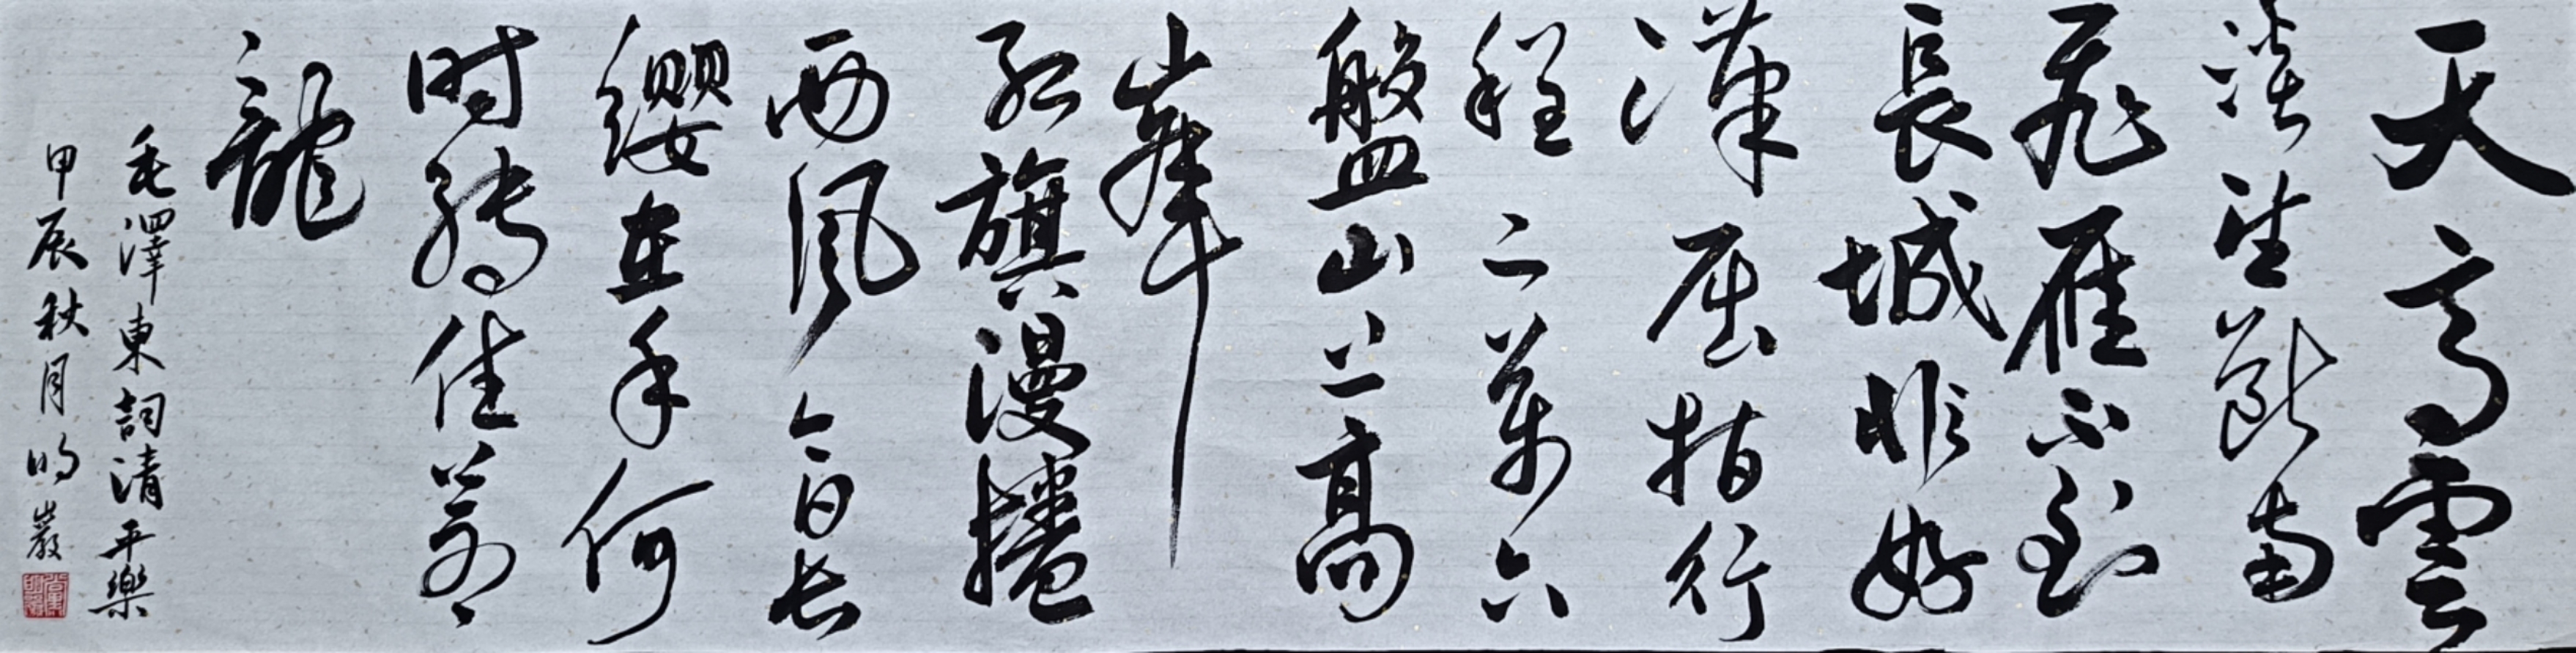 天高雲
淡望斷南
飛雁不到
長城非好
漢屈指行
程二萬六
盤山上高
峯
紅旗漫捲
西風今日長
纓在手何
时縛住蒼
龍
毛澤東詞清平樂
甲辰秋月明巖